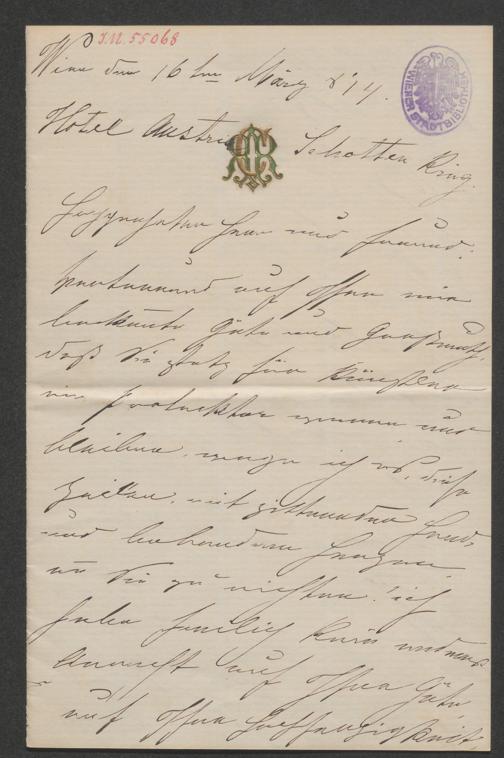 J.N. 55068
WIENER STADTBIBLIOTHEK
Wien den 16ten März 814.
Hotel Austria Schotten Ring.
Hochgeehrter Herr und Freund.
Vertrauend auf Ihre mir
bekannte Güte und Großmuth,
daß Sie stets für Künstler
ein Protecktor waren und
bleiben, wage ich es, diese
Zeilen, mit zitternder Hand,
und bebendem Herzen
an Sie zu richten! ich
habe freilich kein anderes
Anrecht auf Ihre Güte,
auf Ihre Hochherzigkeit,